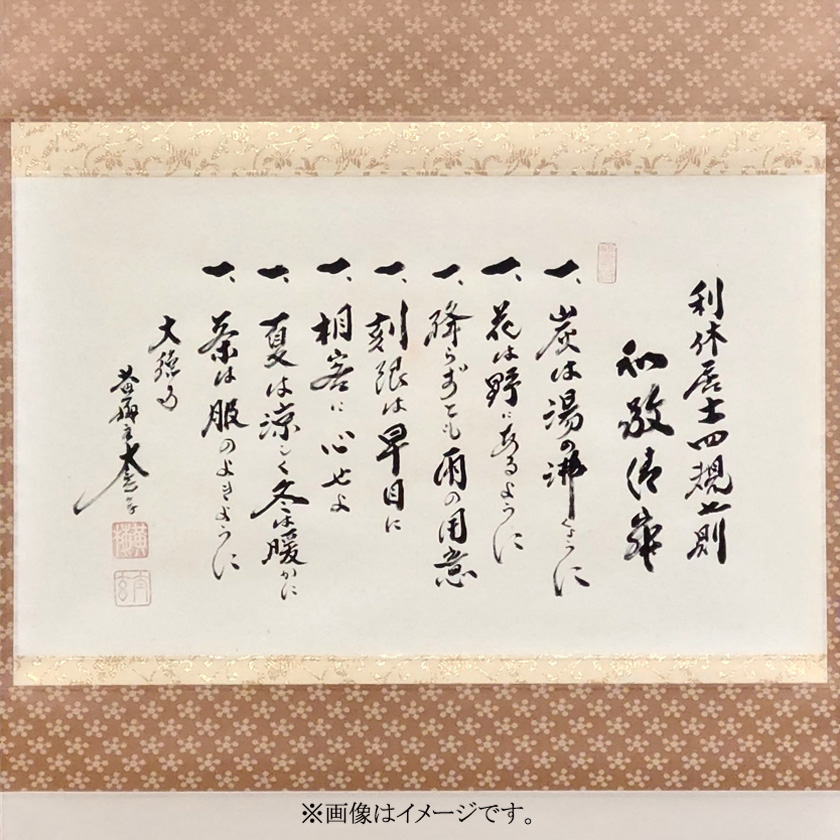 利休居士四規七則
和敬清寂
一、炭は湯の沸くように
一、花は野にあるように
一、降らずとも雨の用意
一、刻限は早目に
一、相客に心せよ
一、夏は涼しく冬は暖かに
一、茶は服のよきように
大徳寺
※画像はイメージです。